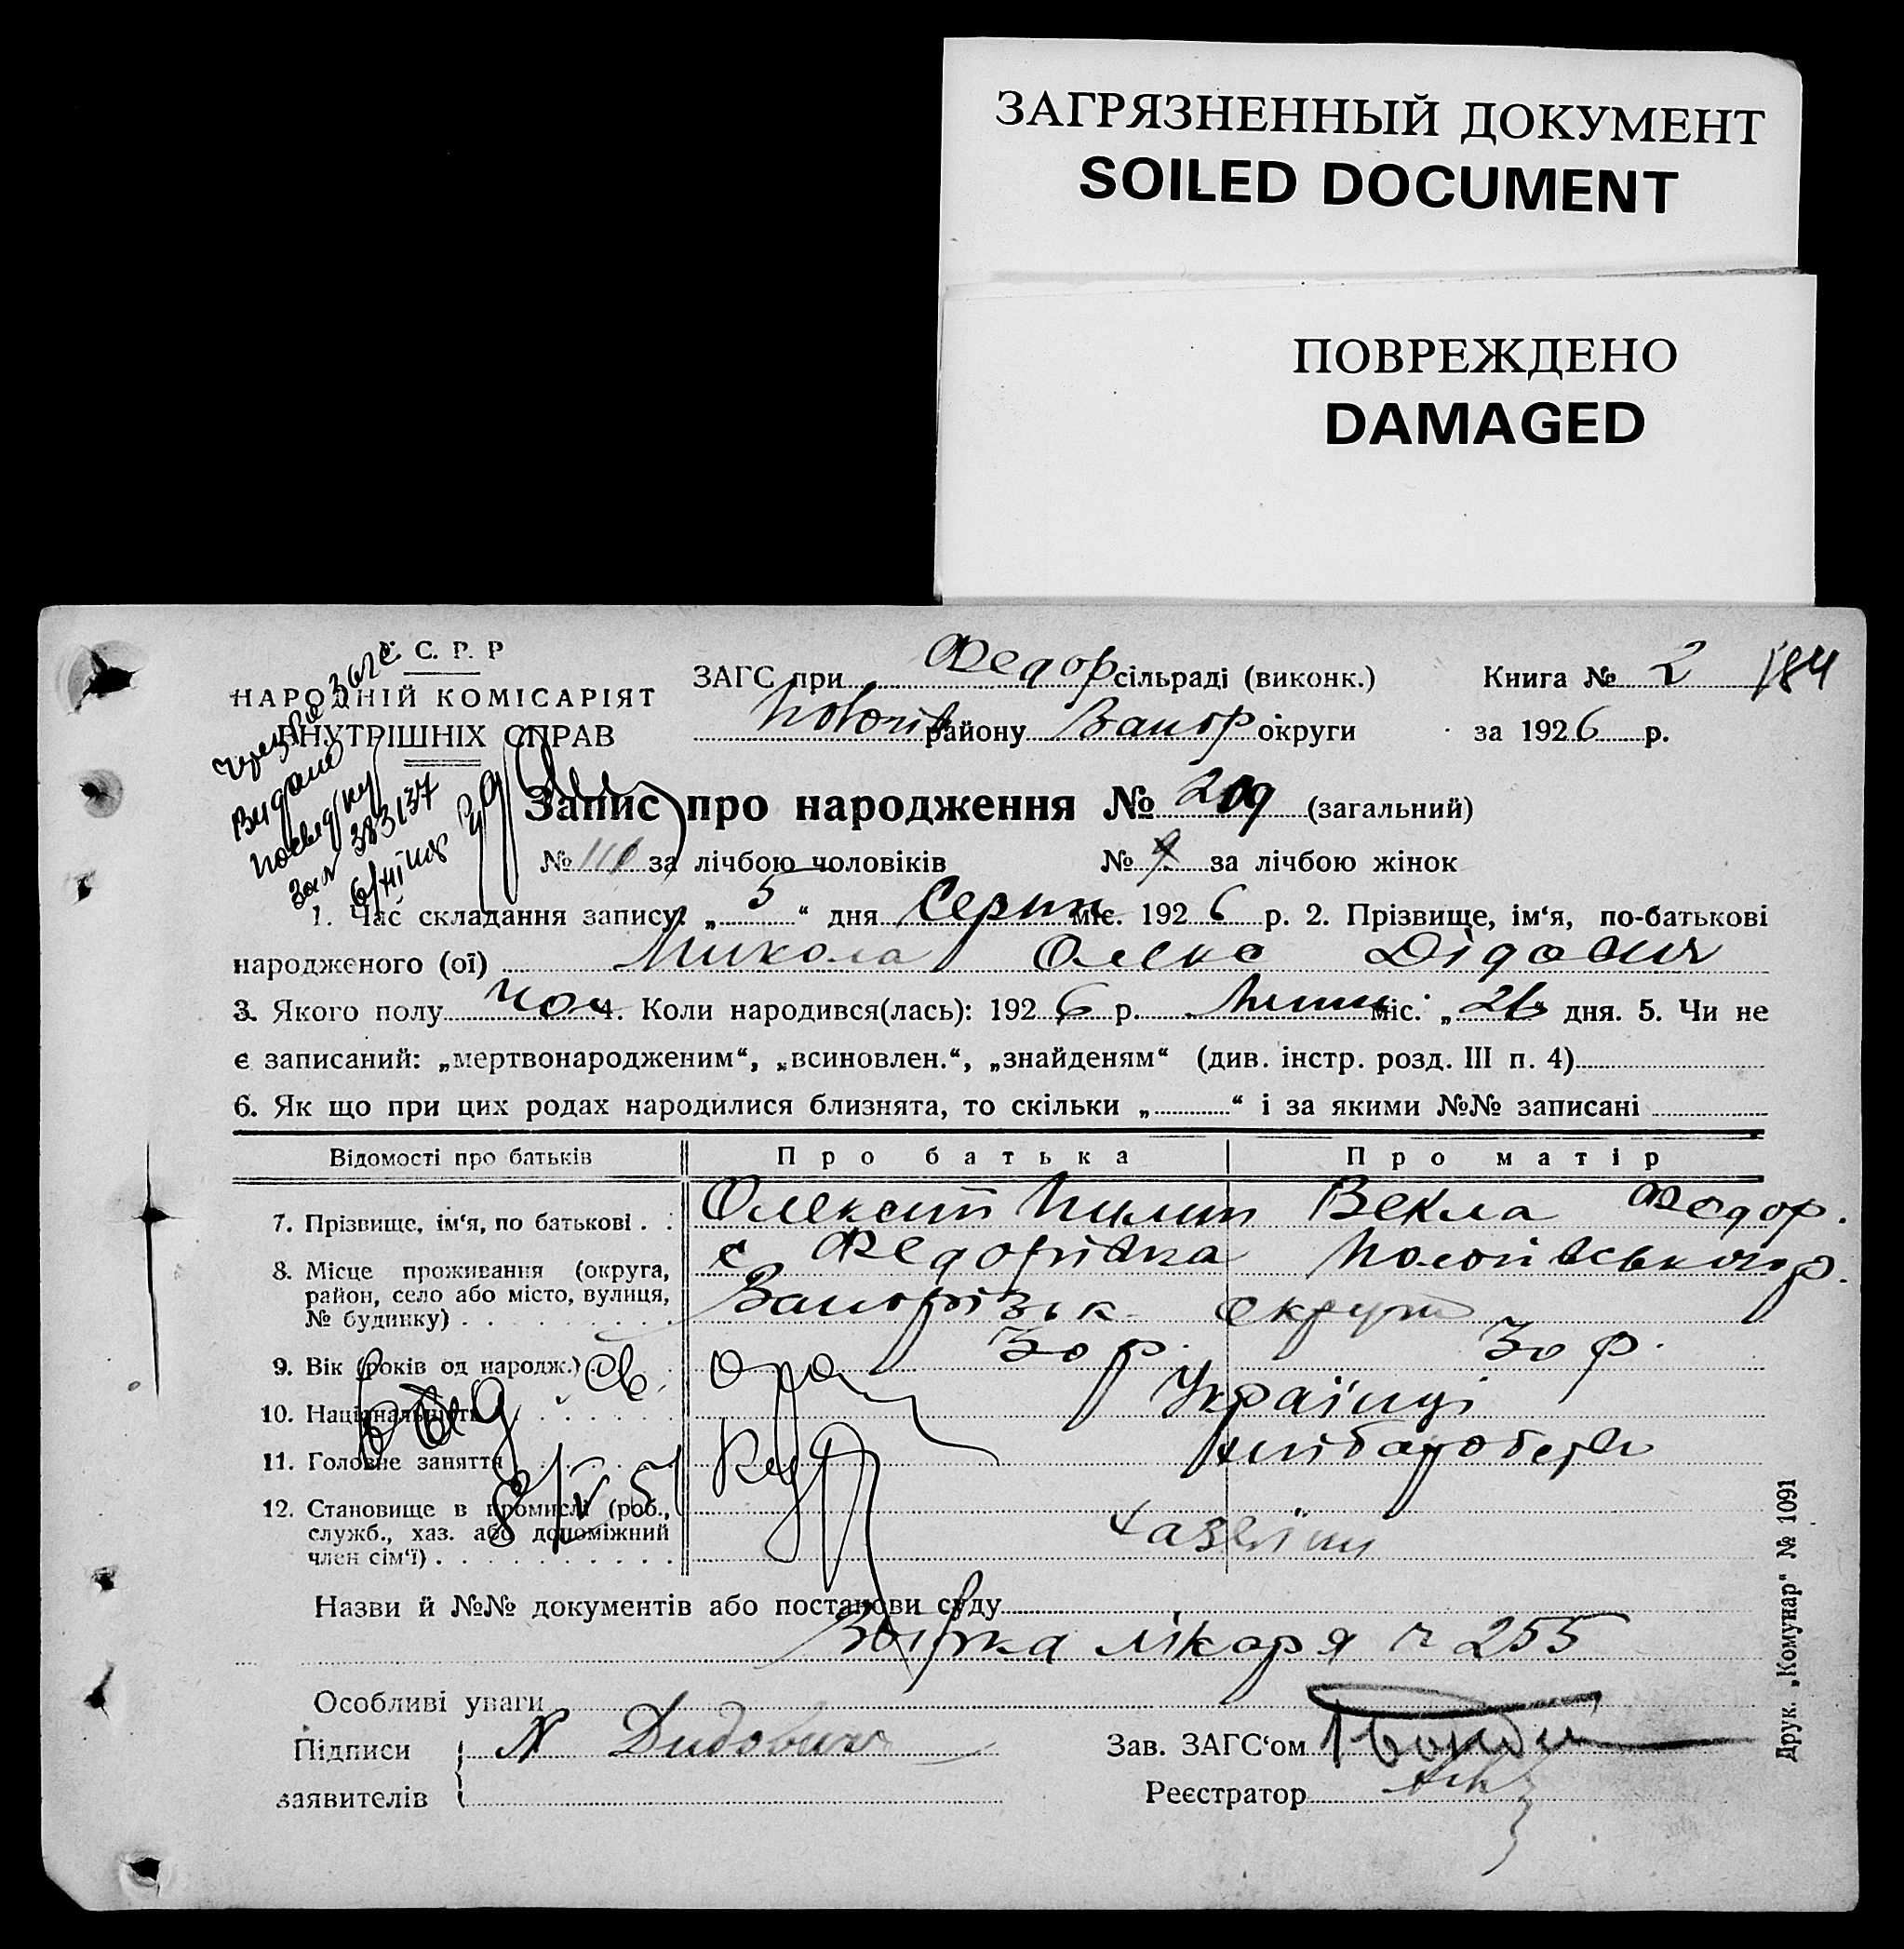 ЗАГРЯЗНЕННЫЙ ДОКУМЕНТ
SOILED DOCUMENT
ПОВРЕЖДЕНО
DAMAGED
С. Р. Р
НАРОДНІЙ КОМІСАРІЯТ
ВНУТРІШНІХ СПРАВ
ЗАГС при Федор сільраді (виконк.)
району Запор округи
Книга № 2 184
за 1926 р.
383137
Запис про народження № 209 (загальний)
№ 111 за лічбою чоловіків № за лічбою жінок
1. Час складання запису: „5“ дня Серпн міс. 1926 р. 2. Прізвище, ім‘я, по-батькові
народженого (ої) Микола Олекс Дідович
3. Якого полу чол 4. Коли народився(лась): 1926 р. Липн міс. „26“ дня. 5. Чи не
є записаний: „мертвонародженим“, „всиновлен.“, „знайденям“ (див. інстр. розд. III п. 4)
6. Як що при цих родах народилися близнята, то скільки „ “ і за якими №№ записані
Відомості про батьків Про батька Про матір
7. Прізвище, ім‘я, по батькові . : Олексій Пилип Векла Федор.
8. Місце проживання (округа, с Федорівка Пологівського р.
район, село або місто, вулиця, Запорізьк. округи
№ будинку)
9. Вік (років од народж.) 30 р. 30 р.
10. Національність Українці
11. Головне заняття хліборобств
12. Становище в промислі (роб.,
служб., хаз. або допоміжний
член сім‘ї) хазяїни
Назви й №№ документів або постанови суду
лікаря ч 255
Особливі уваги
Підписи Дидович Зав. ЗАГС‘ом
заявителів Реєстратор
Друк. „Комунар“ № 1091